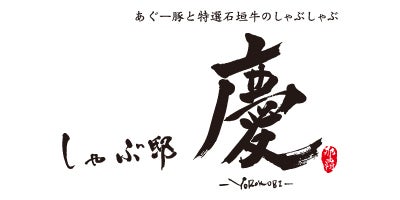 あぐー豚と特選石垣牛のしゃぶしゃぶ
しゃぶ邸
慶
-YOROKOBI-